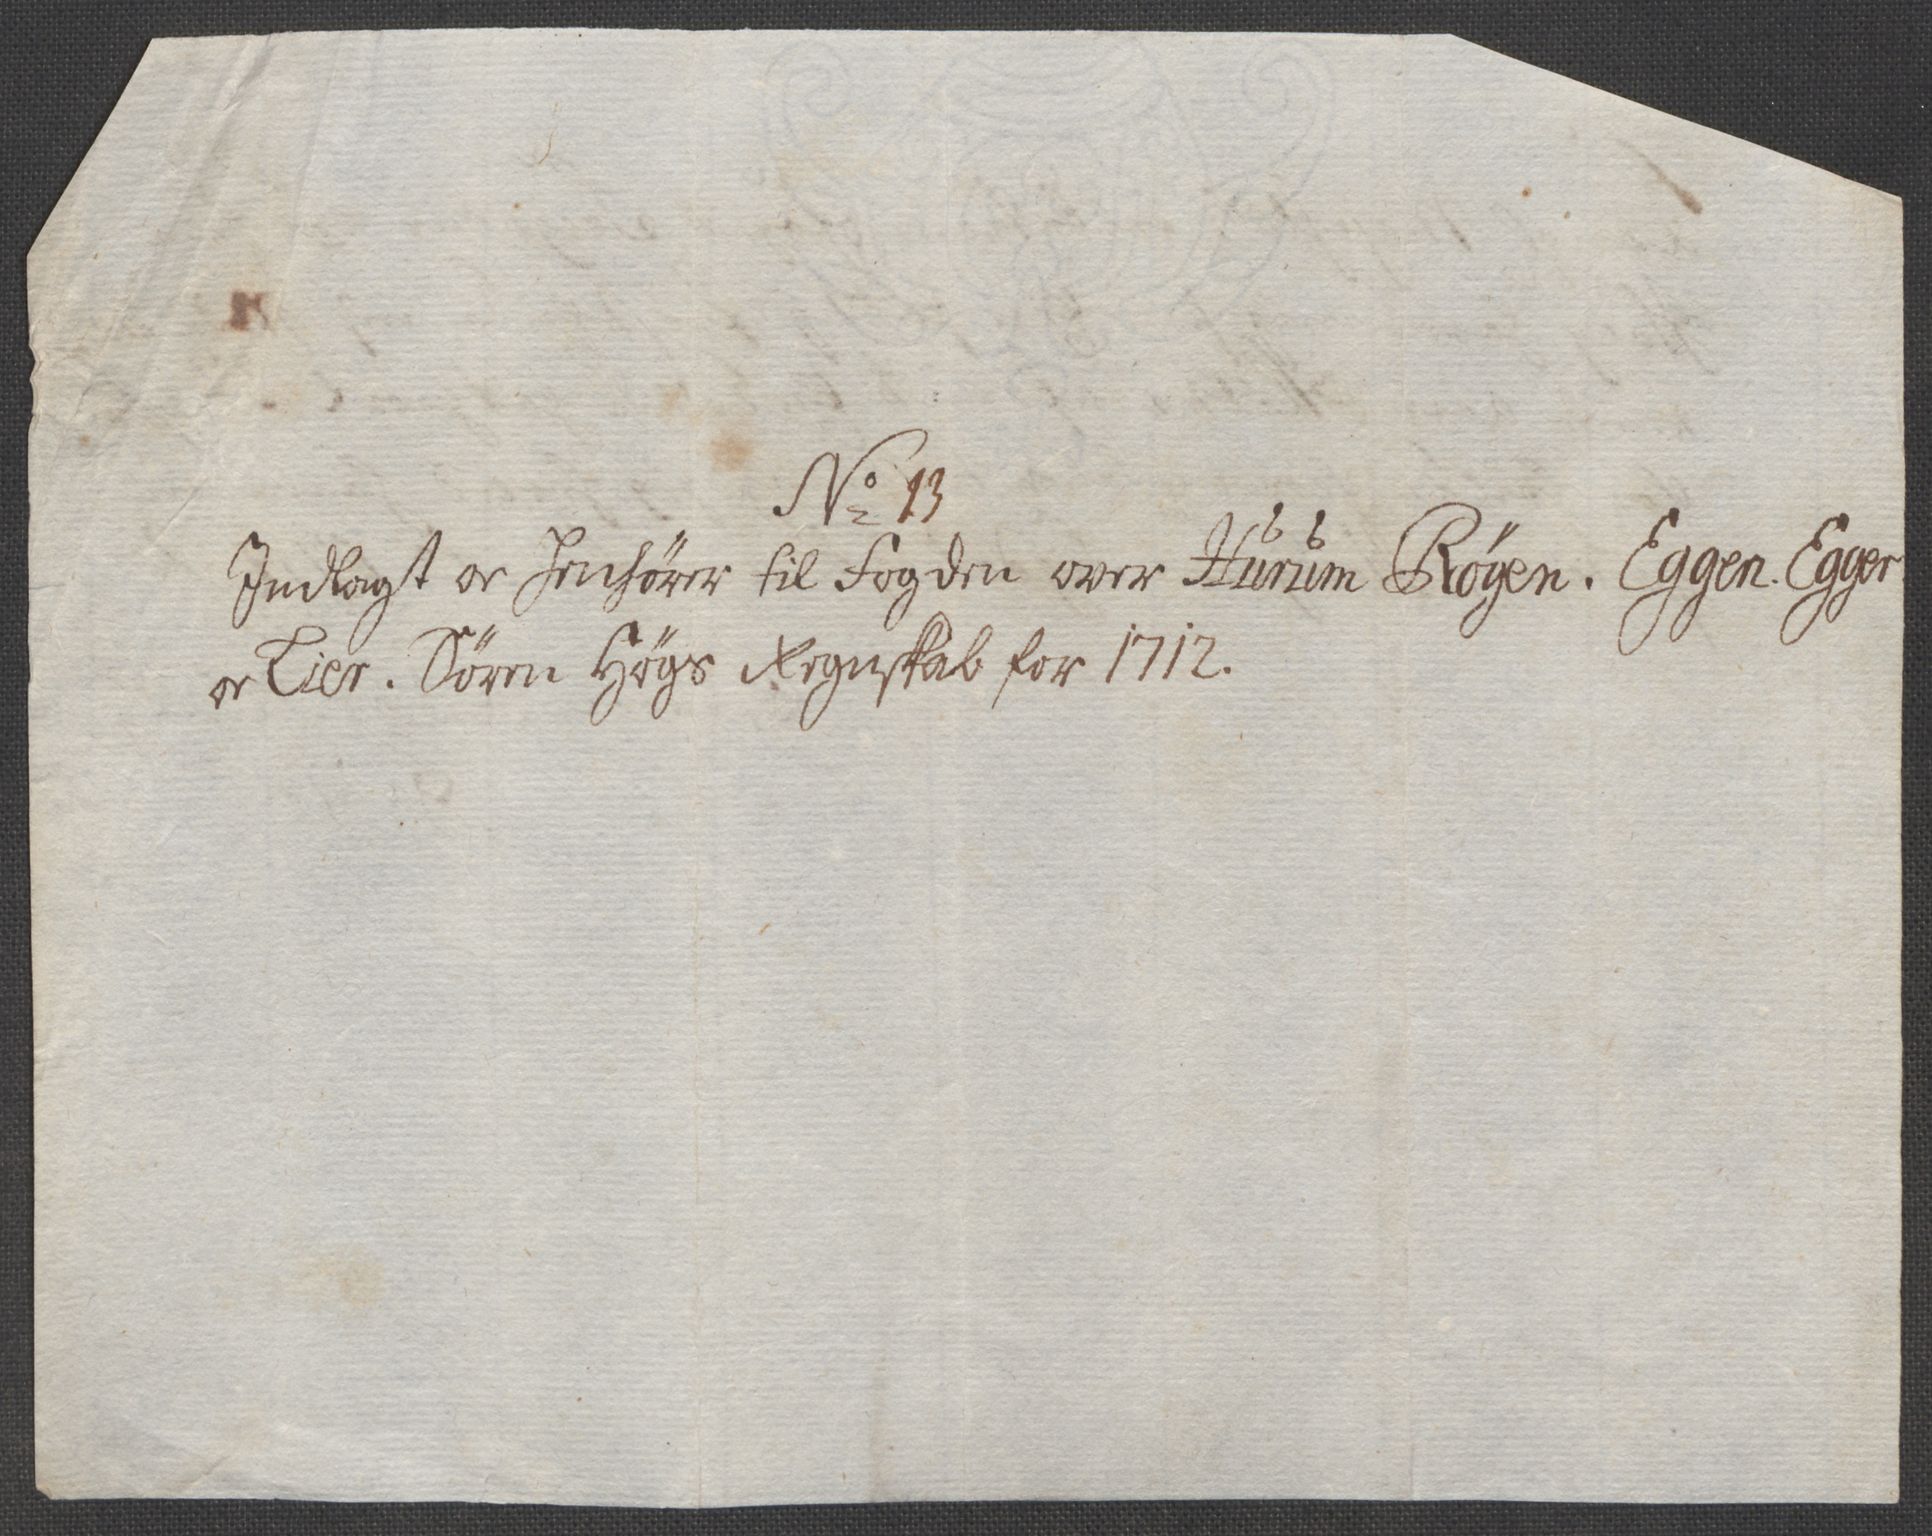 No 13
Indlagt oc henhörer til Fogden over Hurum Røyen. Eggen. Egger
oc Lier. Sören Høgs Regnskab for 1712.